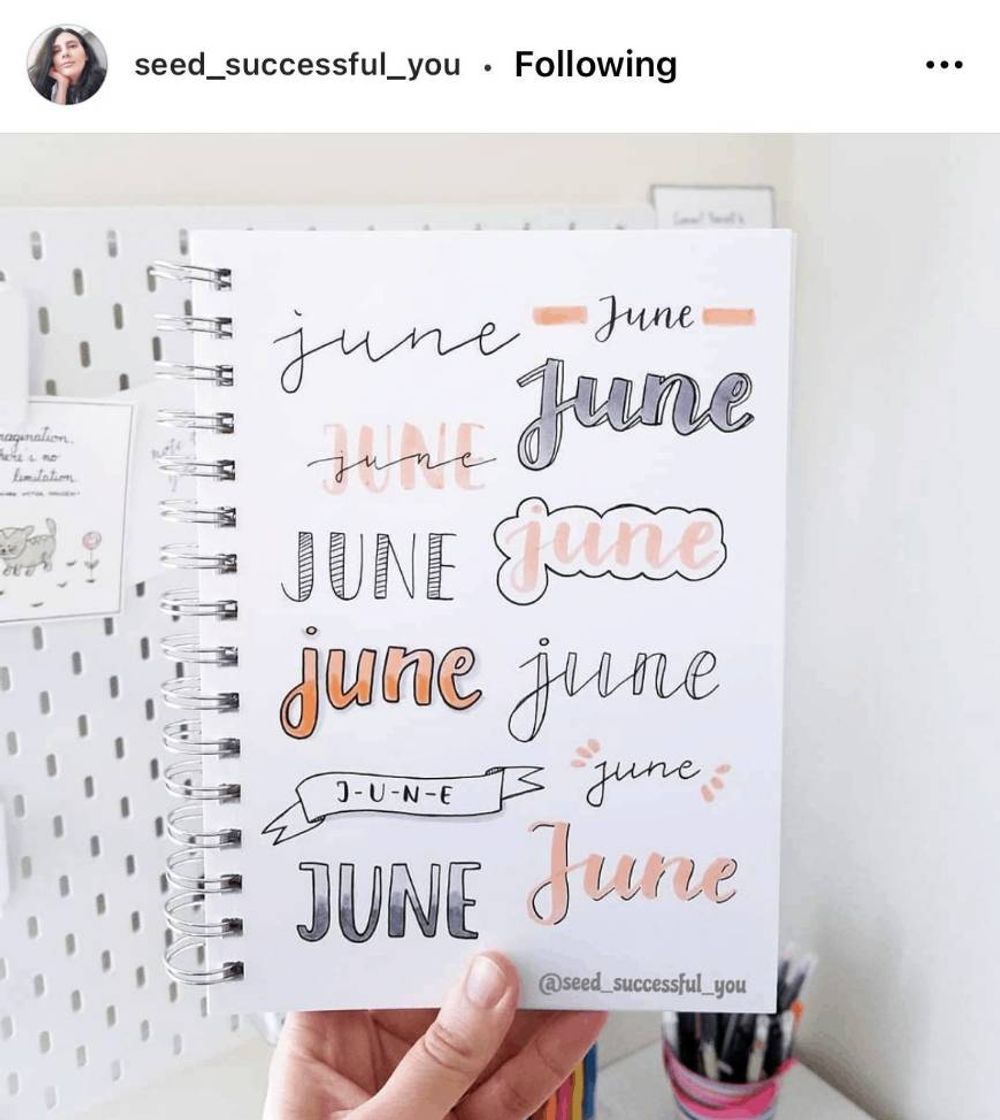 seed_successful_you • Following
june
June
June
JUNE
june
JUNE
june
june
june
J-U-N-E
june
JUNE
June
@seed_successful_you
magination.
here is no
limitation